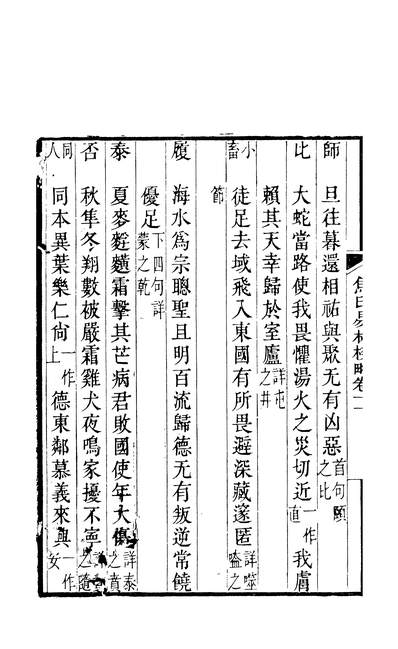 焦氏易林校略卷
師　旦往暮還相祐與聚无有凶惡首句頤之比
比　大蛇當路使我畏懼湯火之災切近一作直我膚
賴其天幸歸於室廬詳屯之井
小畜　徒足去域飛入東國有所畏避深藏邃匿詳噬嗑之
節
履　海水爲宗聰聖且明百流歸德无有叛逆常饒
優足下四句詳蒙之乾
泰　夏麥麩䴰霜擊其芒病君敗國使年大傷詳泰之賁
否　秋隼冬翔數被嚴霜雞犬夜鳴家擾不寧詳之隨
同人　同本異葉樂仁尙一作上德東鄰慕義來與一作女